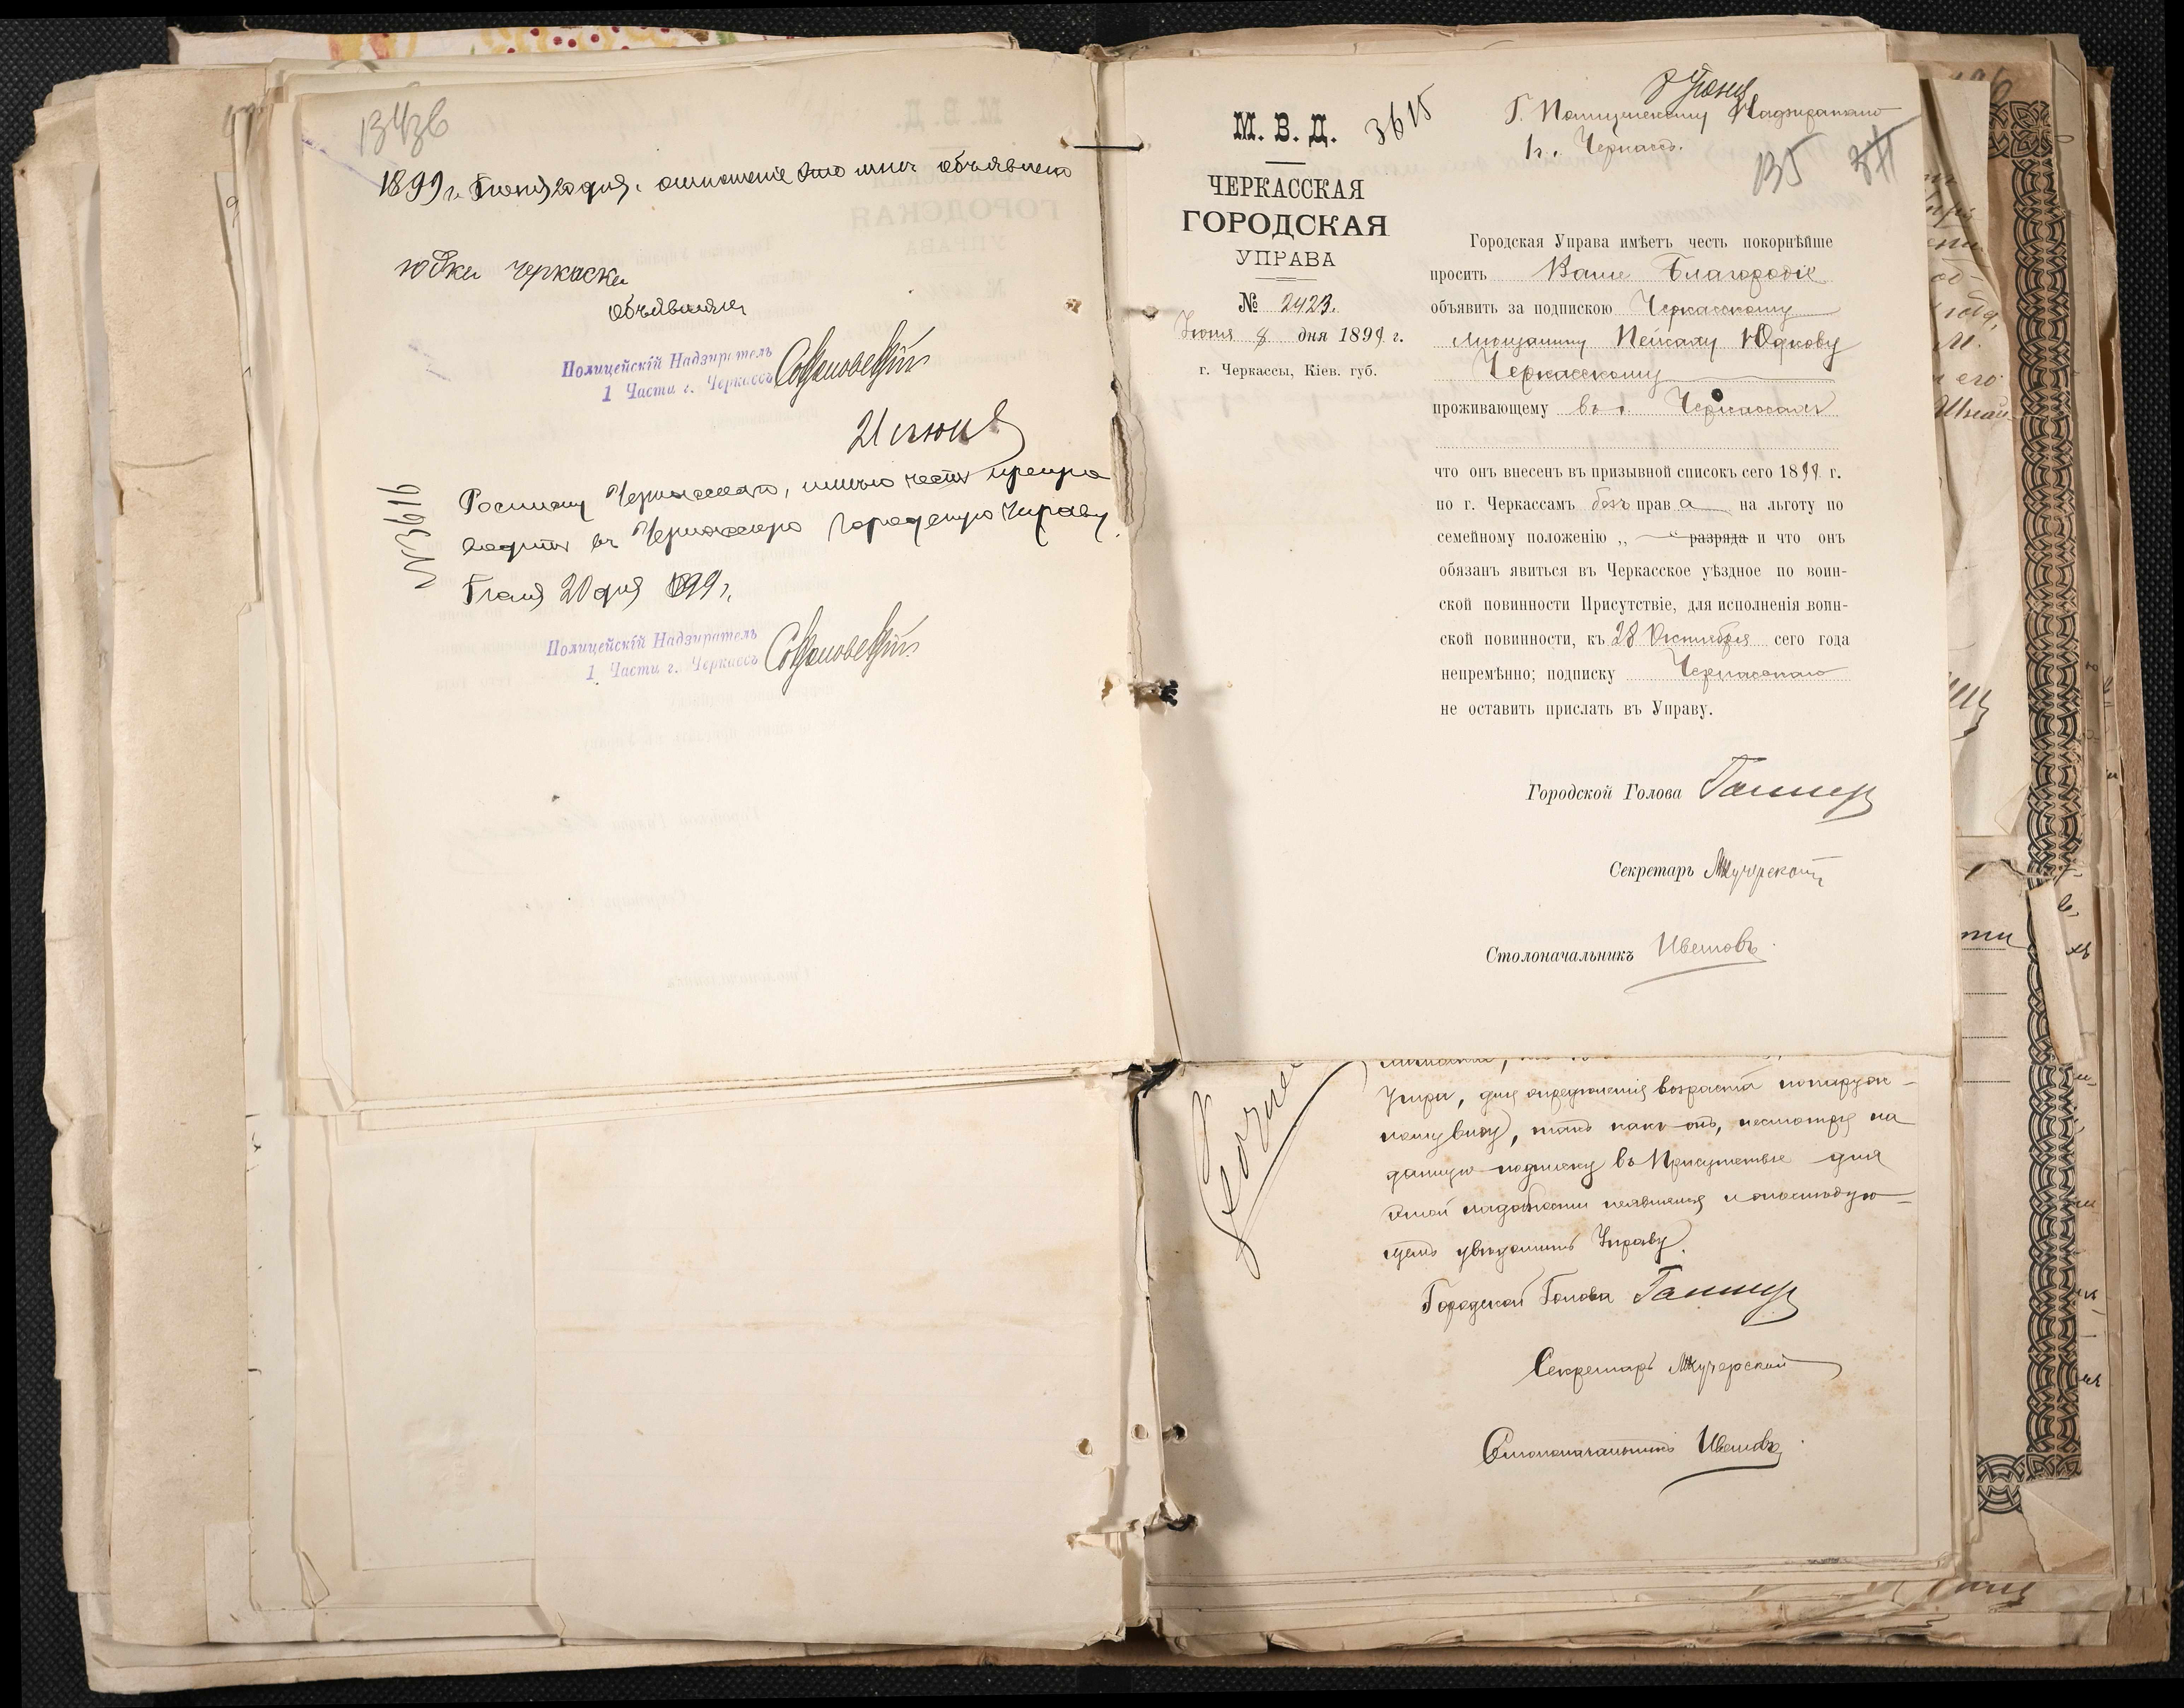 134 об
1899 г. Июня 20 дня. отношеніе это мнѣ объявлено
юдки черкаски
объявилъ
Полицейскій Надзиратель
1 Части г. Черкассъ
21 июня
№ 3616
Росписку Черкасскаго, имѣю честь препро
водить въ Черкасскую Городскую Управу.
Іюня 20 дня 1899 г.
Полицейскій Надзиратель
1 Части г. Черкассъ
М. В. Д.
3615
ЧЕРКАССКАЯ
ГОРОДСКАЯ
УПРАВА
№ 2423.
Іюня 8 дня 1899 г.
г. Черкассы, Кіев. губ.
Г. Полицейскому Надзирателю
1 ч. г. Черкассъ.
135
Городская Управа имѣетъ честь покорнѣйше
просить Ваше Благородіе
объявить за подпискою Черкасскому
мѣщанину Пейсаху Юдкову
Черкасскому
проживающему въ г. Черкассахъ
что онъ внесенъ въ призывной списокъ сего 1899 г.
по г. Черкассамъ безъ права на льготу по
семейному положенію „ “ разряда и что онъ
обязанъ явиться въ Черкасское уѣздное по воин-
ской повинности Присутствіе, для исполненія воин-
ской повинности, къ 28 Октября сего года
непремѣнно; подписку Черкасскаго
не оставить прислать въ Управу.
Городской Голова
Секретарь Мкучерскій
Столоначальникъ Ивановъ
для опредѣленія возраста по наруж-
ному виду, такъ какъ онъ, несмотря на
данную подписку въ Присутствіе для
этой надобности неявился и о послѣдую-
щемъ увѣдомить Управу.
Городской Голова
Секретарь Мкучерскій
Столоначальникъ Ивановъ